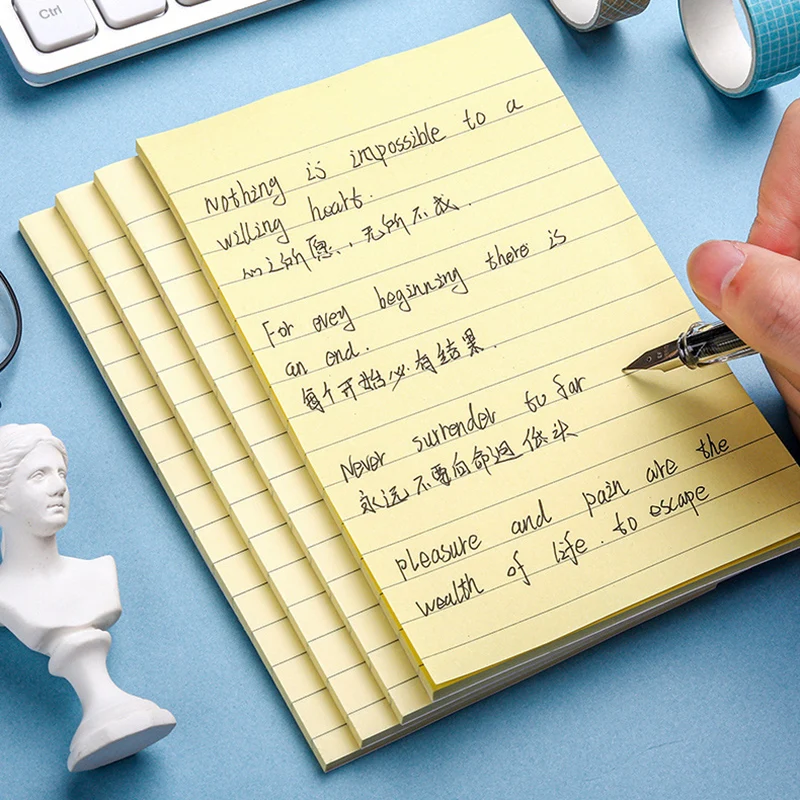 Ctrl
Nothing is impossible to a
willing heart.
心之所愿，无所不成.
For evey beginning there is
an end.
每个开始必有结果.
Never surrender to far
永远不要向命运低头
pleasure and pain are the
wealth of life. to escape